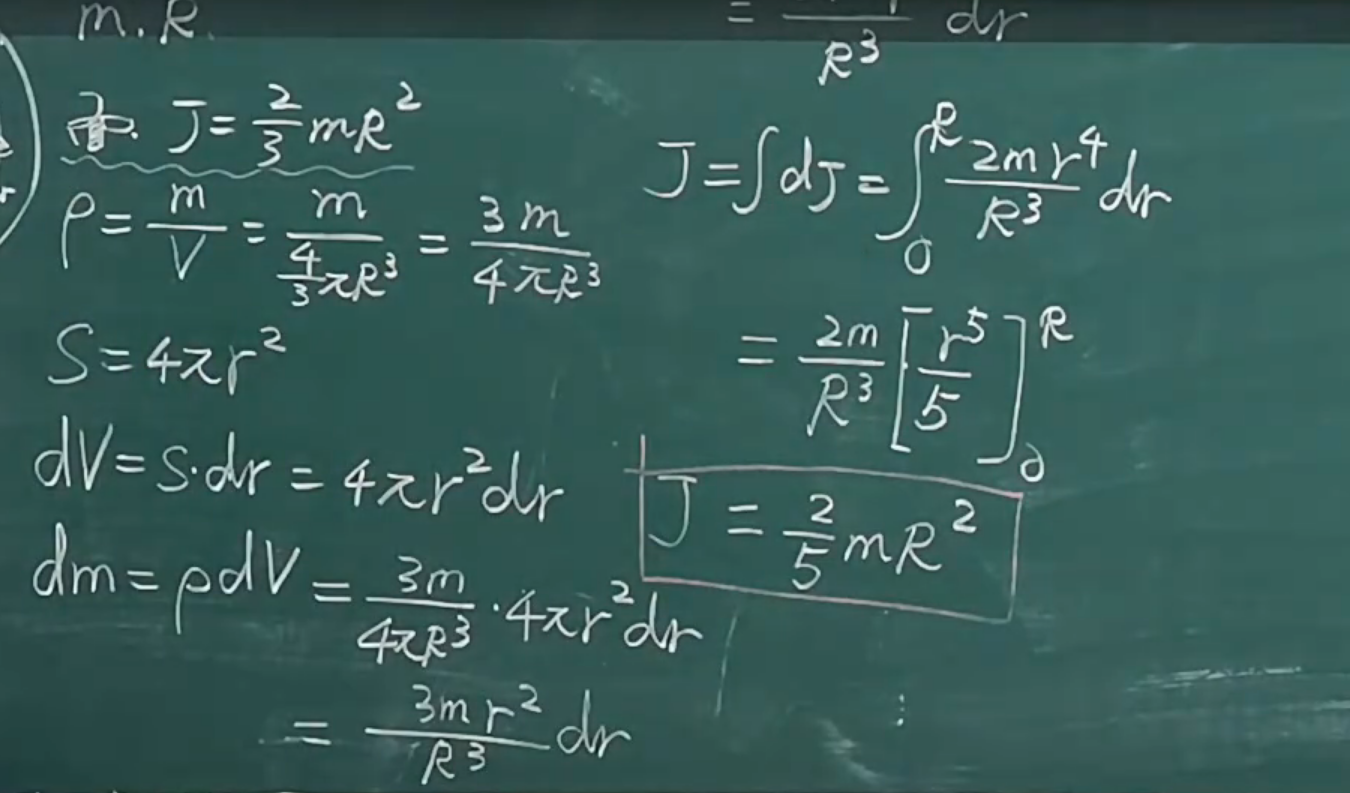 m.R.
J = 2/3 mR²
ρ = m/V = m/(4/3 πR³) = 3m/4πR³
S = 4πr²
dV = S·dr = 4πr²dr
dm = ρdV = 3m/4πR³ · 4πr²dr
= 3mr²/R³ dr
= /R³ dr
J = ∫dJ = ∫₀ᴿ 2mr⁴/R³ dr
= 2m/R³ [r⁵/5]₀ᴿ
J = 2/5 mR²